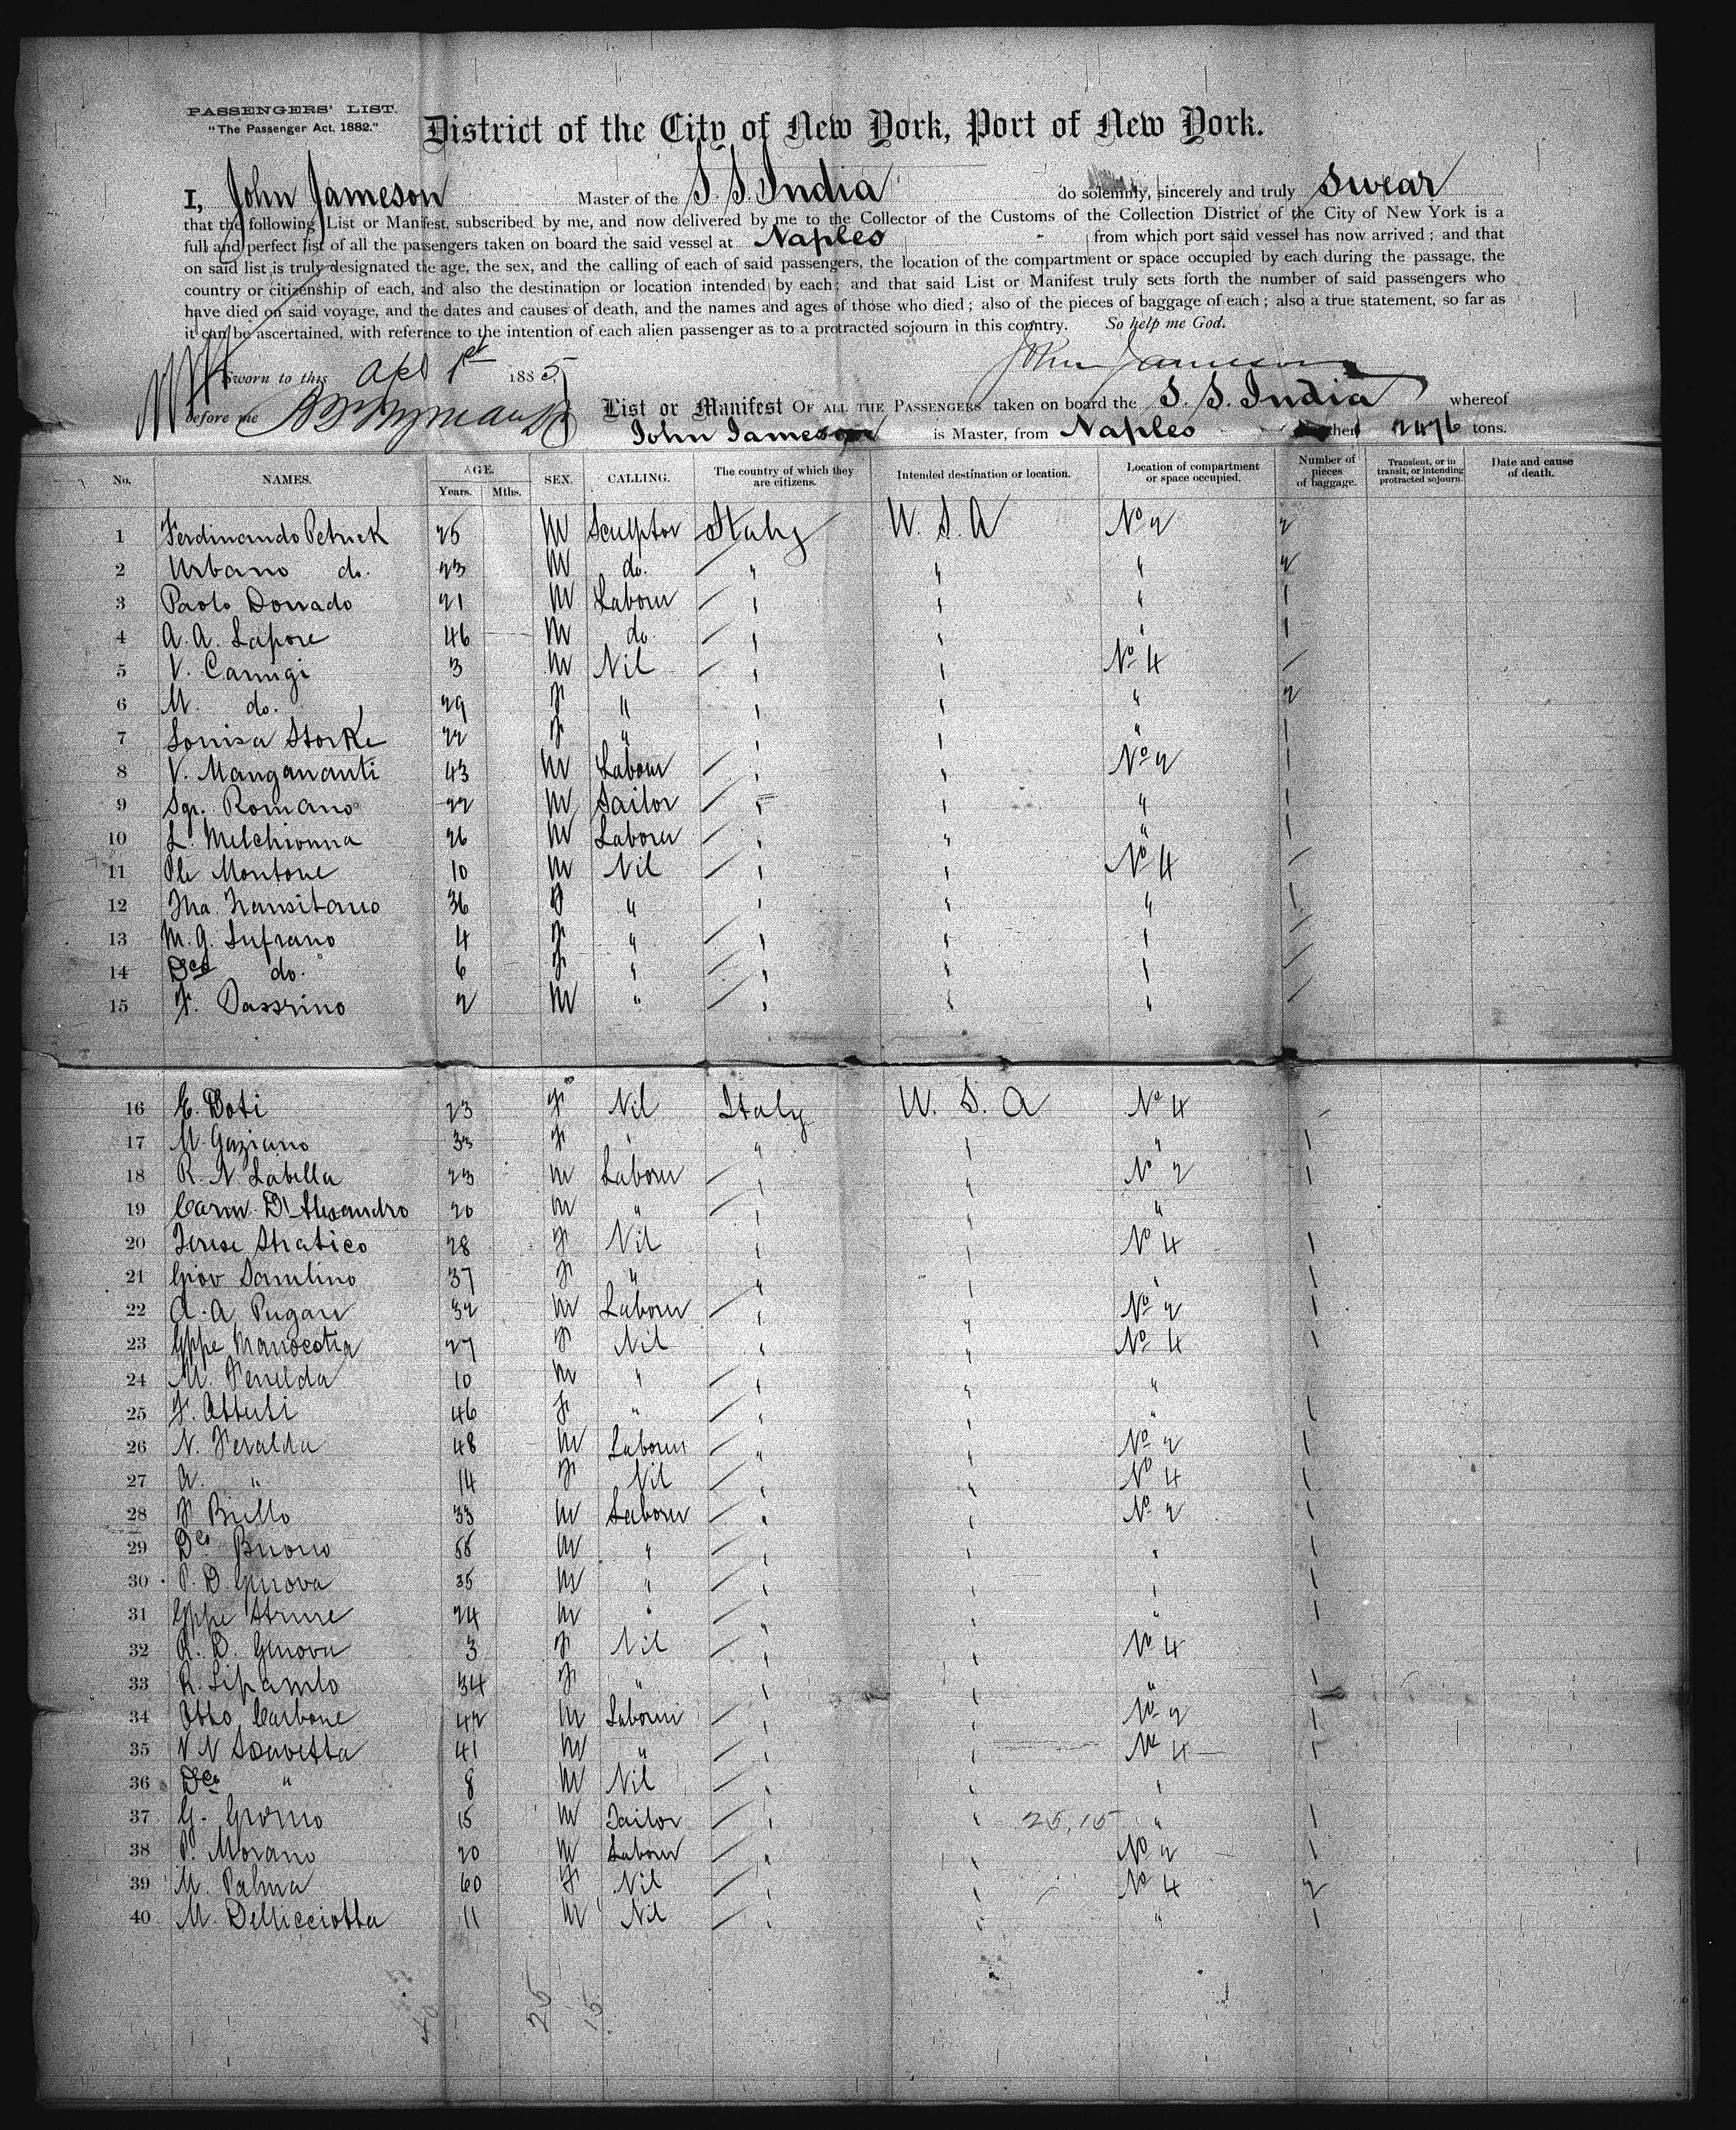 PASSENGERS' LIST.
"The Passenger Act, 1882."
District of the City of New York, Port of New York.
I, John Jameson Master of the S. S. India do solemnly, sincerely and truly swear
that the following List or Manifest, subscribed by me, and now delivered by me to the Collector of the Customs of the Collection District of the City of New York is a
full and perfect list of all the passengers taken on board the said vessel at Naples from which port said vessel has now arrived; and that
on said list is truly designated the age, the sex, and the calling of each of said passengers, the location of the compartment or space occupied by each during the passage, the
country or citizenship of each, and also the destination or location intended by each; and that said List or Manifest truly sets forth the number of said passengers who
have died on said voyage, and the dates and causes of death, and the names and ages of those who died; also of the pieces of baggage of each; also a true statement, so far as
it can be ascertained, with reference to the intention of each alien passenger as to a protracted sojourn in this country. So help me God.
Sworn to this Apl 1st 1885 John Jameson
before me
List or Manifest OF ALL THE PASSENGERS taken on board the S. S. India whereof
John Jameson is Master, from Naples 2476 tons.
No. NAMES. AGE. Years. Mths. SEX. CALLING. The country of which they are citizens. Intended destination or location. Location of compartment or space occupied. Number of pieces of baggage. Transient, or in transit, or intending protracted sojourn. Date and cause of death.
1 Ferdinando Petrick 25 M Sculptor Italy U. S. A No 2 2
2 Urbano do. 23 M do. " " " 2
3 Paolo Donado 21 M Labour " " " 1
4 A. A. Lapore 46 M do. " " " 1
5 V. Canigi 3 M Nil " " No 4
6 M. do. 29 F " " " " 2
7 Louisa Storke 22 F " " " " 1
8 V. Mangananti 43 M Labour " " No 2 1
9 Sgr. Romano 22 M Sailor " " " 1
10 L. Melchionna 26 M Labour " " " 1
11 Ple Montone 10 M Nil " " No 4
12 Mia. Transitano 36 F " " " " 1
13 M. G. Lufrano 4 F " " " "
14 Dco do. 6 F " " " "
15 F. Passrino 2 M " " " "
16 E. Doti 23 F Nil Italy U. S. A No 4
17 M. Gaziano 33 F " " " " 1
18 R. N. Labella 23 M Labour " " No 2 1
19 Carm. D'Alesandro 20 M " " " "
20 Terese Stratico 28 F Nil " " No 4 1
21 Giov Samlino 37 F " " " " 1
22 A. A Pugari 32 M Labour " " No 2 1
23 Gppe Manocotia 27 F Nil " " No 4 1
24 M. 10 M " " " "
25 F. Abbuti 46 F " " " " 1
26 N. Peralda 48 M Labour " " No 2 1
27 A. " 14 F Nil " " No 4 1
28 F. Biello 33 M Labour " " No 2 1
29 Dco Buono 55 M " " " " 1
30 P. D. Genova 35 M " " " " 1
31 Gppe Strine 24 M " " " " 1
32 R. D. Genova 3 F Nil " " No 4
33 R. Lipamlo 34 F " " " " 1
34 Otto Carbone 42 M Labour " " No 2 1
35 V N Souvetta 41 M " " " No 4 1
36 Dco " 8 M Nil " " "
37 G. Giorno 15 M Tailor " " 25,15 " 1
38 P. Morano 20 M Labour " " No 2 1
39 M. Palma 60 F Nil " " No 4 2
40 M. Dellicciotta 11 M Nil " " " 1
40 25 15